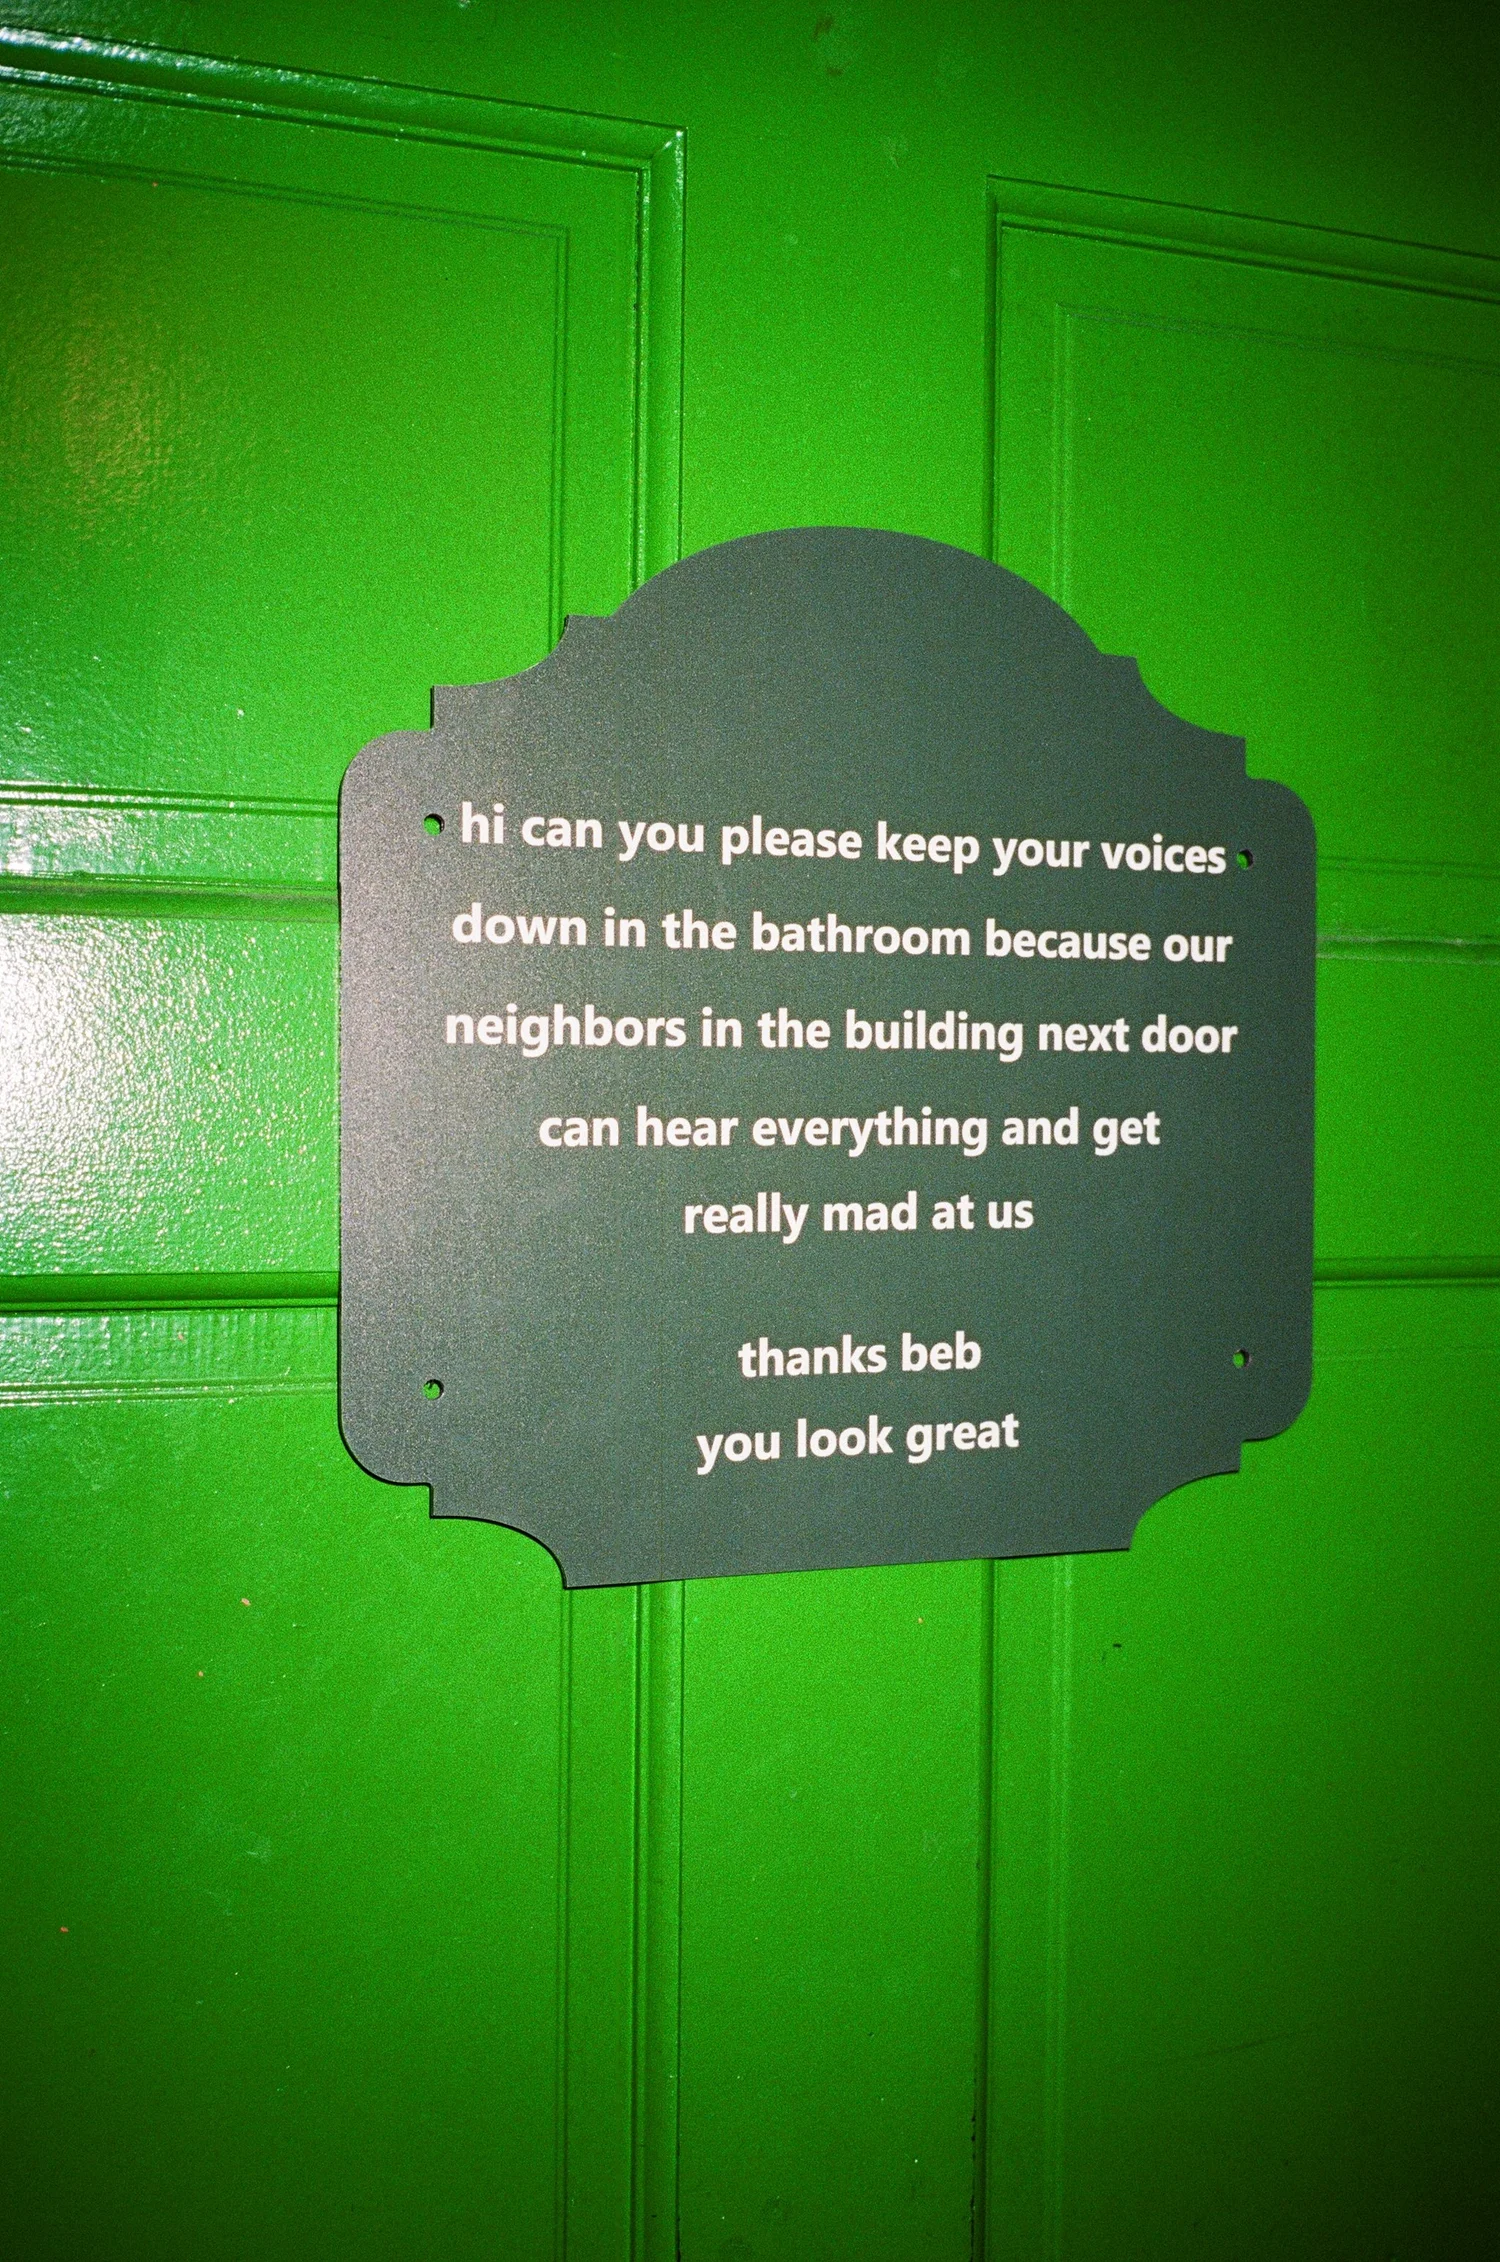 hi can you please keep your voices
down in the bathroom because our
neighbors in the building next door
can hear everything and get
really mad at us
thanks beb
you look great